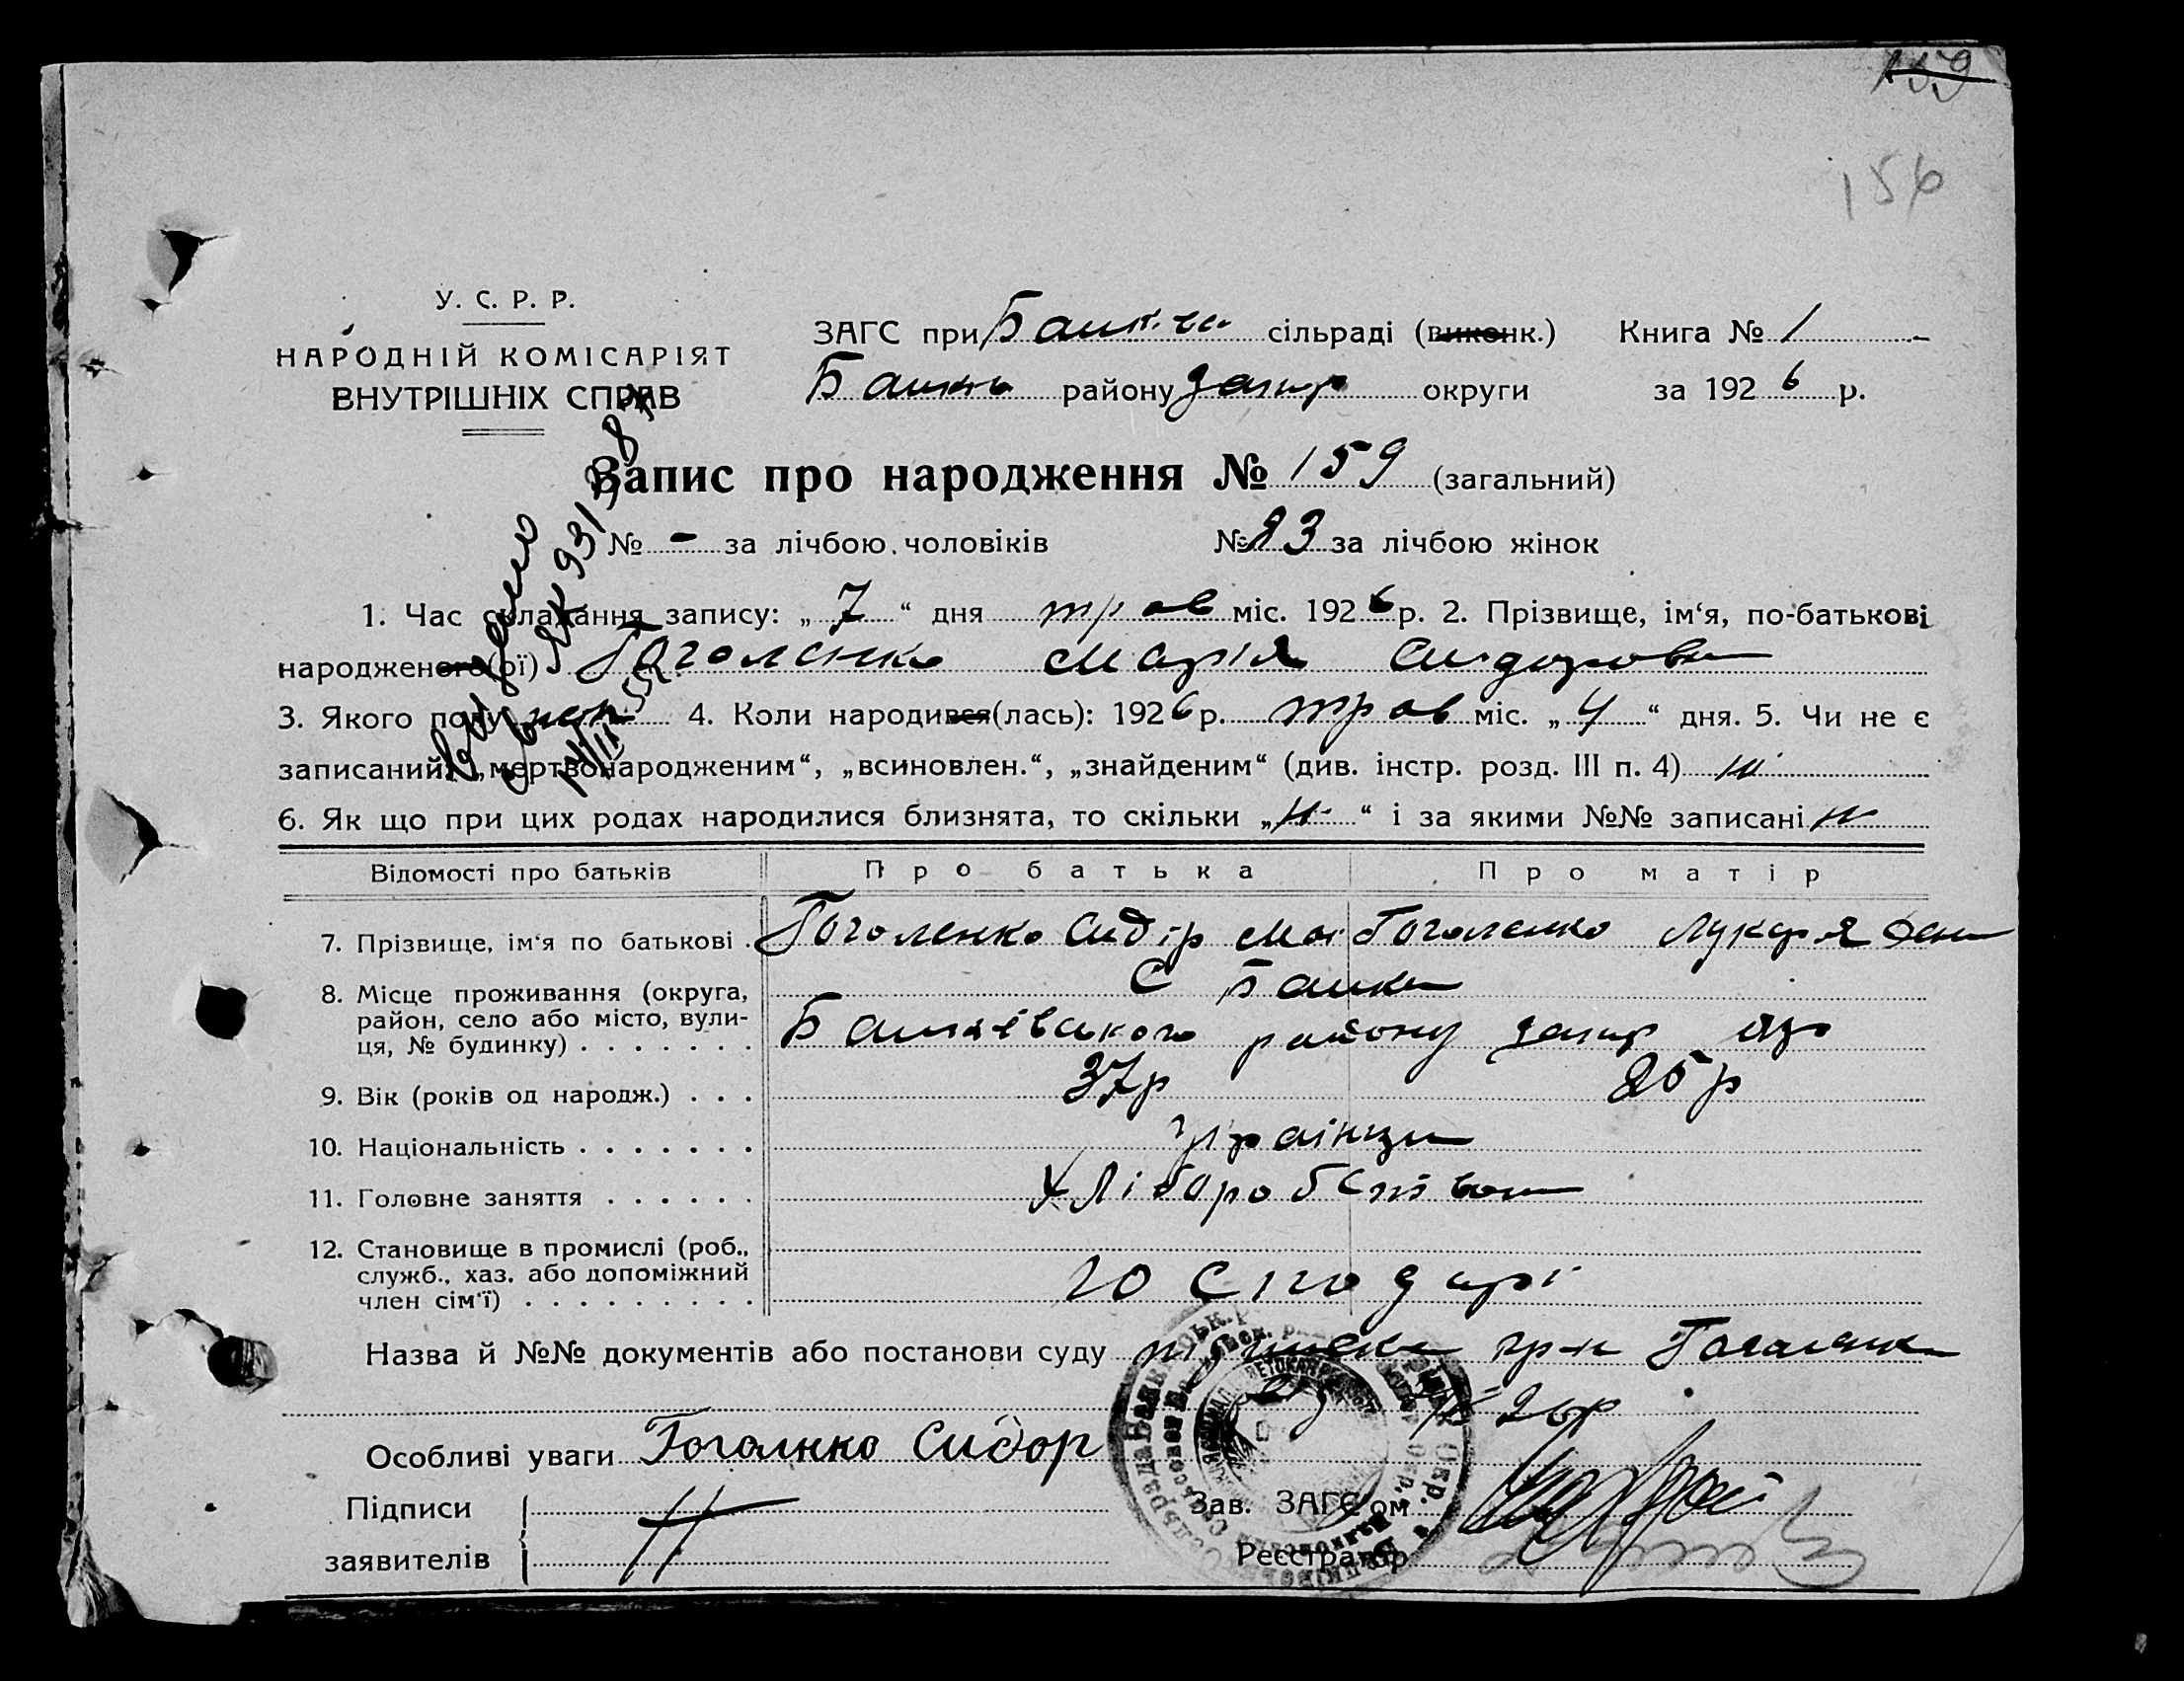 159
156
У. С. Р. Р.
НАРОДНІЙ КОМІСАРІЯТ
ВНУТРІШНІХ СПРАВ
ЗАГС при сільраді (виконк.) Книга № 1
району Запор округи за 1926 р.
Запис про народження № 159 (загальний)
№ - за лічбою чоловіків № 83 за лічбою жінок
1. Час складання запису: „7“ дня трав міс. 1926 р. 2. Прізвище, ім‘я, по-батькові
народженого(ої) Гоголенко Марія Сидоровн
3. Якого полу 4. Коли народився(лась): 1926 р. трав міс. „4“ дня. 5. Чи не є
записаний: „мертвонародженим“, „всиновлен.“, „знайденим“ (див. інстр. розд. III п. 4) ні
6. Як що при цих родах народилися близнята, то скільки „н“ і за якими №№ записані н
Відомості про батьків Про батька Про матір
7. Прізвище, ім‘я по батькові . Гоголенко Сидір Гоголенко Лукєря
8. Місце проживання (округа, С
район, село або місто, вули- району запор
ця, № будинку) . . . . . . .
9. Вік (років од народж.) . . . 37р 25р
10. Національність . . . . . . . Українци
11. Головне заняття . . . . . . Хліборобство
12. Становище в промислі (роб.,
служб., хаз. або допоміжний
член сім‘ї) . . . . . . . . . госпо дарі
Назва й №№ документів або постанови суду гр-н Гоголенк
26р
Особливі уваги Гоголнко Сидор
Підписи
заявителів
Зав. ЗАГС‘ом
Реєстратор